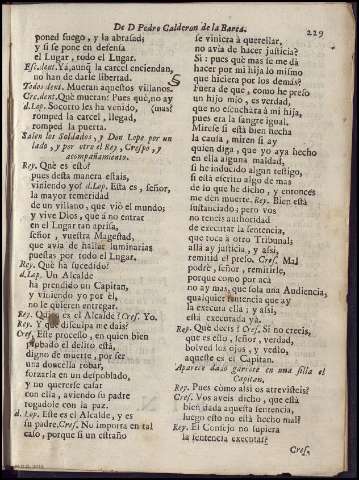 De D Pedro Calderon de la Barca.
229
poned fuego, y la abrasad;
y si se pone en defensa
el Lugar, todo el Lugar.
Esc. dent. Ya, aunq̃ la carcel enciendan,
no han de darle libertad.
Todos dent. Mueran aquestos villanos.
Cre. dent. Què mueran! Pues què, no ay
d. Lop. Socorro les ha venido, (mas?
romped la carcel, llegad,
romped la puerta.
Salen los Soldados, y Don Lope por un
lado, y por otro el Rey, Crespo, y
acompañamiento.
Rey. Què es esto?
pues desta manera estais,
viniendo yo? d. Lop. Esta es, señor,
la mayor temeridad
de un villano, que viò el mundo;
y vive Dios, que à no entrar
en el Lugar tan aprisa,
señor, vuestra Magestad,
que avia de hallar luminarias
puestas por todo el Lugar.
Rey. Què ha sucedido?
d. Lop. Un Alcalde
ha prendido un Capitan,
y viniendo yo por èl,
no le quieren entregar.
Rey. Quien es el Alcalde? Cres. Yo.
Rey. Y què disculpa me dais?
Cres. Este processo, en quien bien
probado el delito està,
digno de muerte, por ser
una doncella robar,
forzarla en un despoblado,
y no quererse casar
con ella, aviendo su padre
rogadole con la paz.
d. Lop. Este es el Alcalde, y es
su padre. Cres. No importa en tal
caso, porque si un estraño
se viniera à querellar,
no avia de hacer justicia?
Si: pues què mas se me dà
hacer por mi hija lo mismo
que hiciera por los demàs?
Fuera de que, como he preso
un hijo mio, es verdad,
que no escuchàra à mi hija,
pues era la sangre igual.
Mirese si està bien hecha
la causa, miren si ay
quien diga, que yo aya hecho
en ella alguna maldad,
si he inducido algun testigo,
si està escrito algo de mas
de lo que he dicho, y entonces
me den muerte. Rey. Bien està
sustanciado; pero vos
no teneis authoridad
de executar la sentencia,
que toca à otro Tribunal;
allà ay justicia, y assi,
remitid el preso. Cres. Mal
podrè, señor, remitirle,
porque como por acà
no ay mas, que sola una Audiencia,
qualquier sentencia que ay
la executa ella; y assi,
està executada yà.
Rey. Què decis? Cres. Si no creeis,
que es esto, señor, verdad,
bolved los ojos, y vedlo,
aqueste es el Capitan.
Aparece dado garrote en una silla el
Capitan.
Rey. Pues còmo assi os atrevisteis?
Cres. Vos aveis dicho, que està
bien dada aquesta sentencia,
luego esto no està hecho mal?
Rey. El Consejo no supiera
la sentencia executar?
Cres.